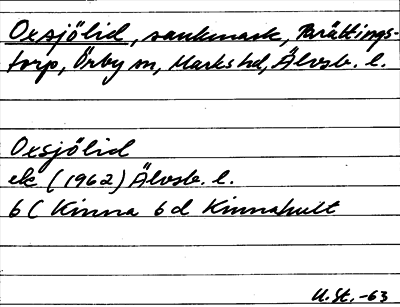 Oxsjölid, sankmark, Berättings-
torp, Örby sn, Marks hd, Älvsb. l.
Oxsjölid
ek (1962) Älvsb. l.
6 C Kinna 6 d Kinnahult
U.St. -63